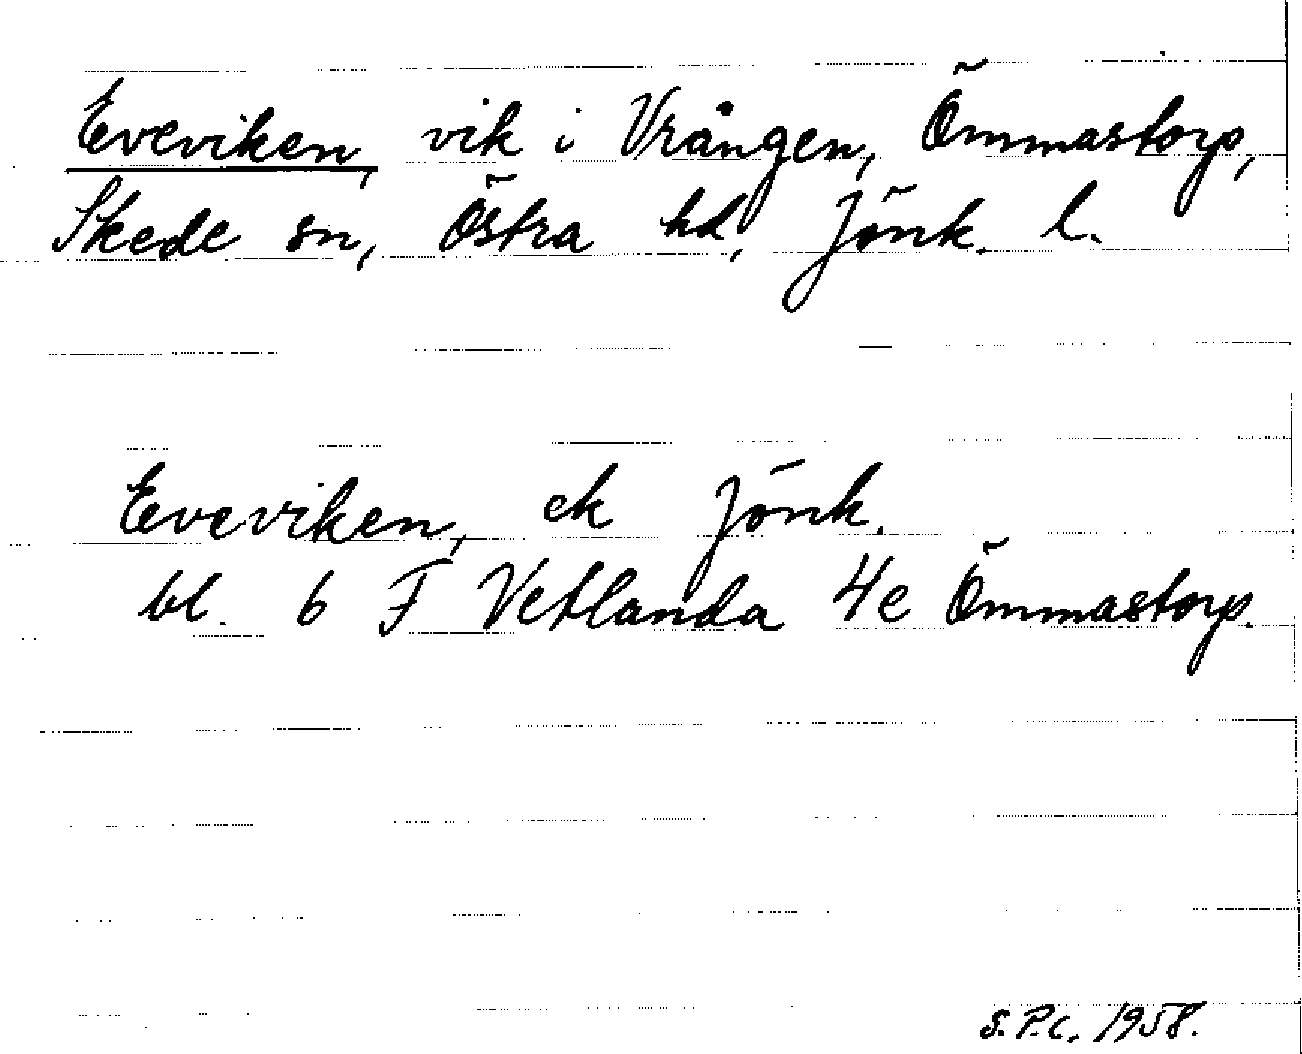 Eveviken, vik i Vrången, Ömmastorp,
Skede sn, Östra hd, Jönk. l.
Eveviken, ek Jönk.
bl. 6 F Vetlanda 4e Ömmastorp.
S.P.C. 1958.